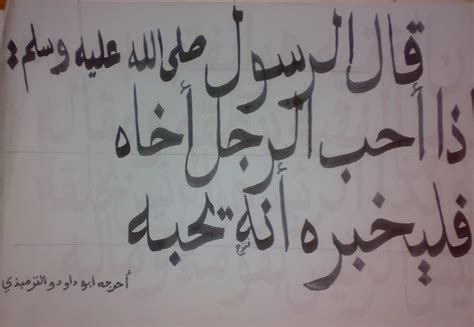 قال الرسول صلى الله عليه وسلم :
اذا أحب الرجل أخاه
فليخبره أنه يحبه
أخرجه ابو داود والترميذي